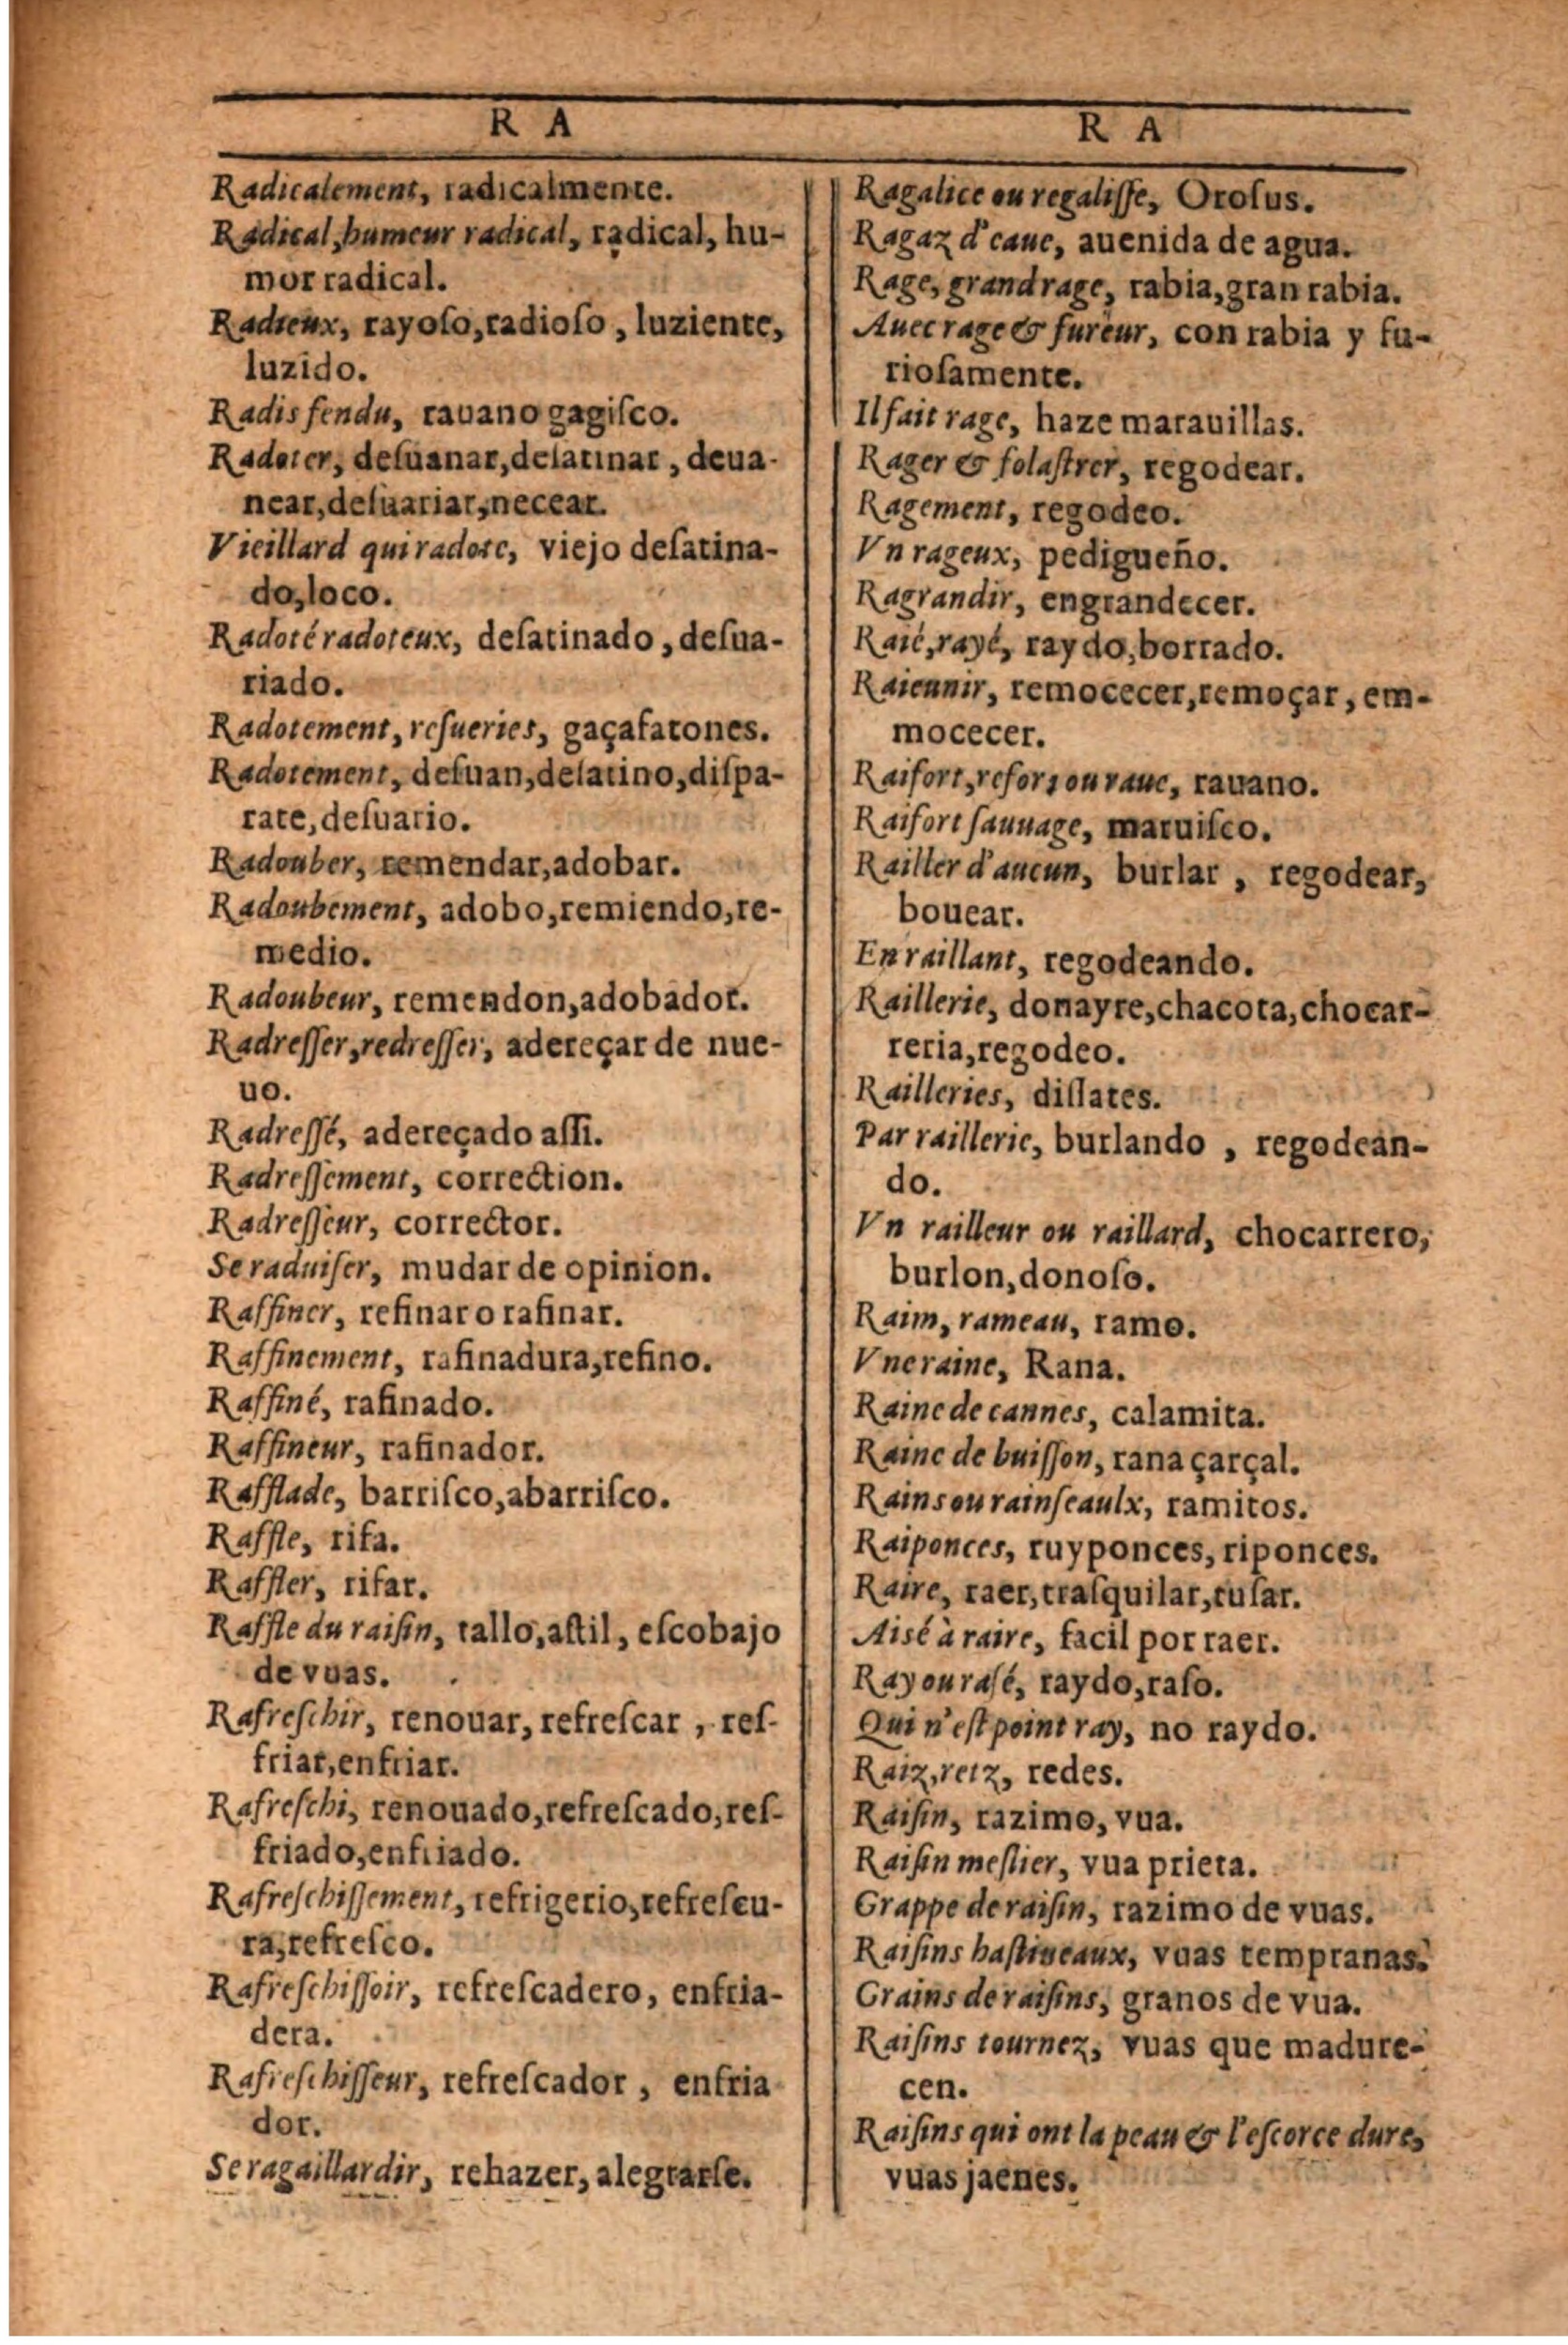 R A
Radicalement, radicalmente.
Radical, humeur radical, radical, hu-
mor radical.
Radieux, rayoſo, radioſo, luziente,
luzido.
Radis fendu, rauano gagiſco.
Radoter, deſuanar, deſatinar, deua-
near, deſuariar, necear.
Vieillard qui radote, viejo deſatina-
do, loco.
Radoté radoteux, deſatinado, deſua-
riado.
Radotement, reſueries, gaçafatones.
Radotement, deſuan, deſatino, diſpa-
rate, deſuario.
Radouber, remendar, adobar.
Radoubement, adobo, remiendo, re-
medio.
Radoubeur, remendon, adobador.
Radreſſer, redreſſer, adereçar de nue-
uo.
Radreſſé, adereçado aſſi.
Radreſſement, correction.
Radreſſeur, corrector.
Se raduiſer, mudar de opinion.
Raffiner, refinar o rafinar.
Raffinement, rafinadura, refino.
Raffiné, rafinado.
Raffineur, rafinador.
Rafflade, barriſco, abarriſco.
Raffle, rifa.
Raffler, rifar.
Raffle du raiſin, tallo, aſtil, eſcobajo
de vuas.
Rafreſchir, renouar, refreſcar, reſ-
friar, enfriar.
Rafreſchi, renouado, refreſcado, reſ-
friado, enfriado.
Rafreſchiſſement, refrigerio, refreſcu-
ra, refreſco.
Rafreſchiſſoir, refreſcadero, enfria-
dera.
Rafreſchiſſeur, refreſcador, enfria
dor.
Se ragaillardir, rehazer, alegrarſe.
R A
Ragalice ou regaliſſe, Oroſus.
Ragaz d'eaue, auenida de agua.
Rage, grand rage, rabia, gran rabia.
Auec rage & fureur, con rabia y fu-
rioſamente.
Il fait rage, haze marauillas.
Rager & folaſtrer, regodear.
Ragement, regodeo.
Vn rageux, pedigueño.
Ragrandir, engrandecer.
Raié, rayé, raydo, borrado.
Raieunir, remocecer, remoçar, em-
mocecer.
Raifort, refort ou raue, rauano.
Raifort ſauuage, maruiſco.
Railler d'aucun, burlar, regodear,
bouear.
En raillant, regodeando.
Raillerie, donayre, chacota, chocar-
reria, regodeo.
Railleries, diſlates.
Par raillerie, burlando, regodean-
do.
Vn railleur ou raillard, chocarrero,
burlon, donoſo.
Raim, rameau, ramo.
Vne raine, Rana.
Raine de cannes, calamita.
Raine de buiſſon, rana çarçal.
Rains ou rainſeaulx, ramitos.
Raiponces, ruyponces, riponces.
Raire, raer, traſquilar, tuſar.
Aisé à raire, facil por raer.
Ray ou raſé, raydo, raſo.
Qui n'eſt point ray, no raydo.
Raiz, retz, redes.
Raiſin, razimo, vua.
Raiſin meſlier, vua prieta.
Grappe de raiſin, razimo de vuas.
Raiſins haſtiueaux, vuas tempranas.
Grains de raiſins, granos de vua.
Raiſins tournez, vuas que madure-
cen.
Raiſins qui ont la peau & l'eſcorce dure,
vuas jaenes.